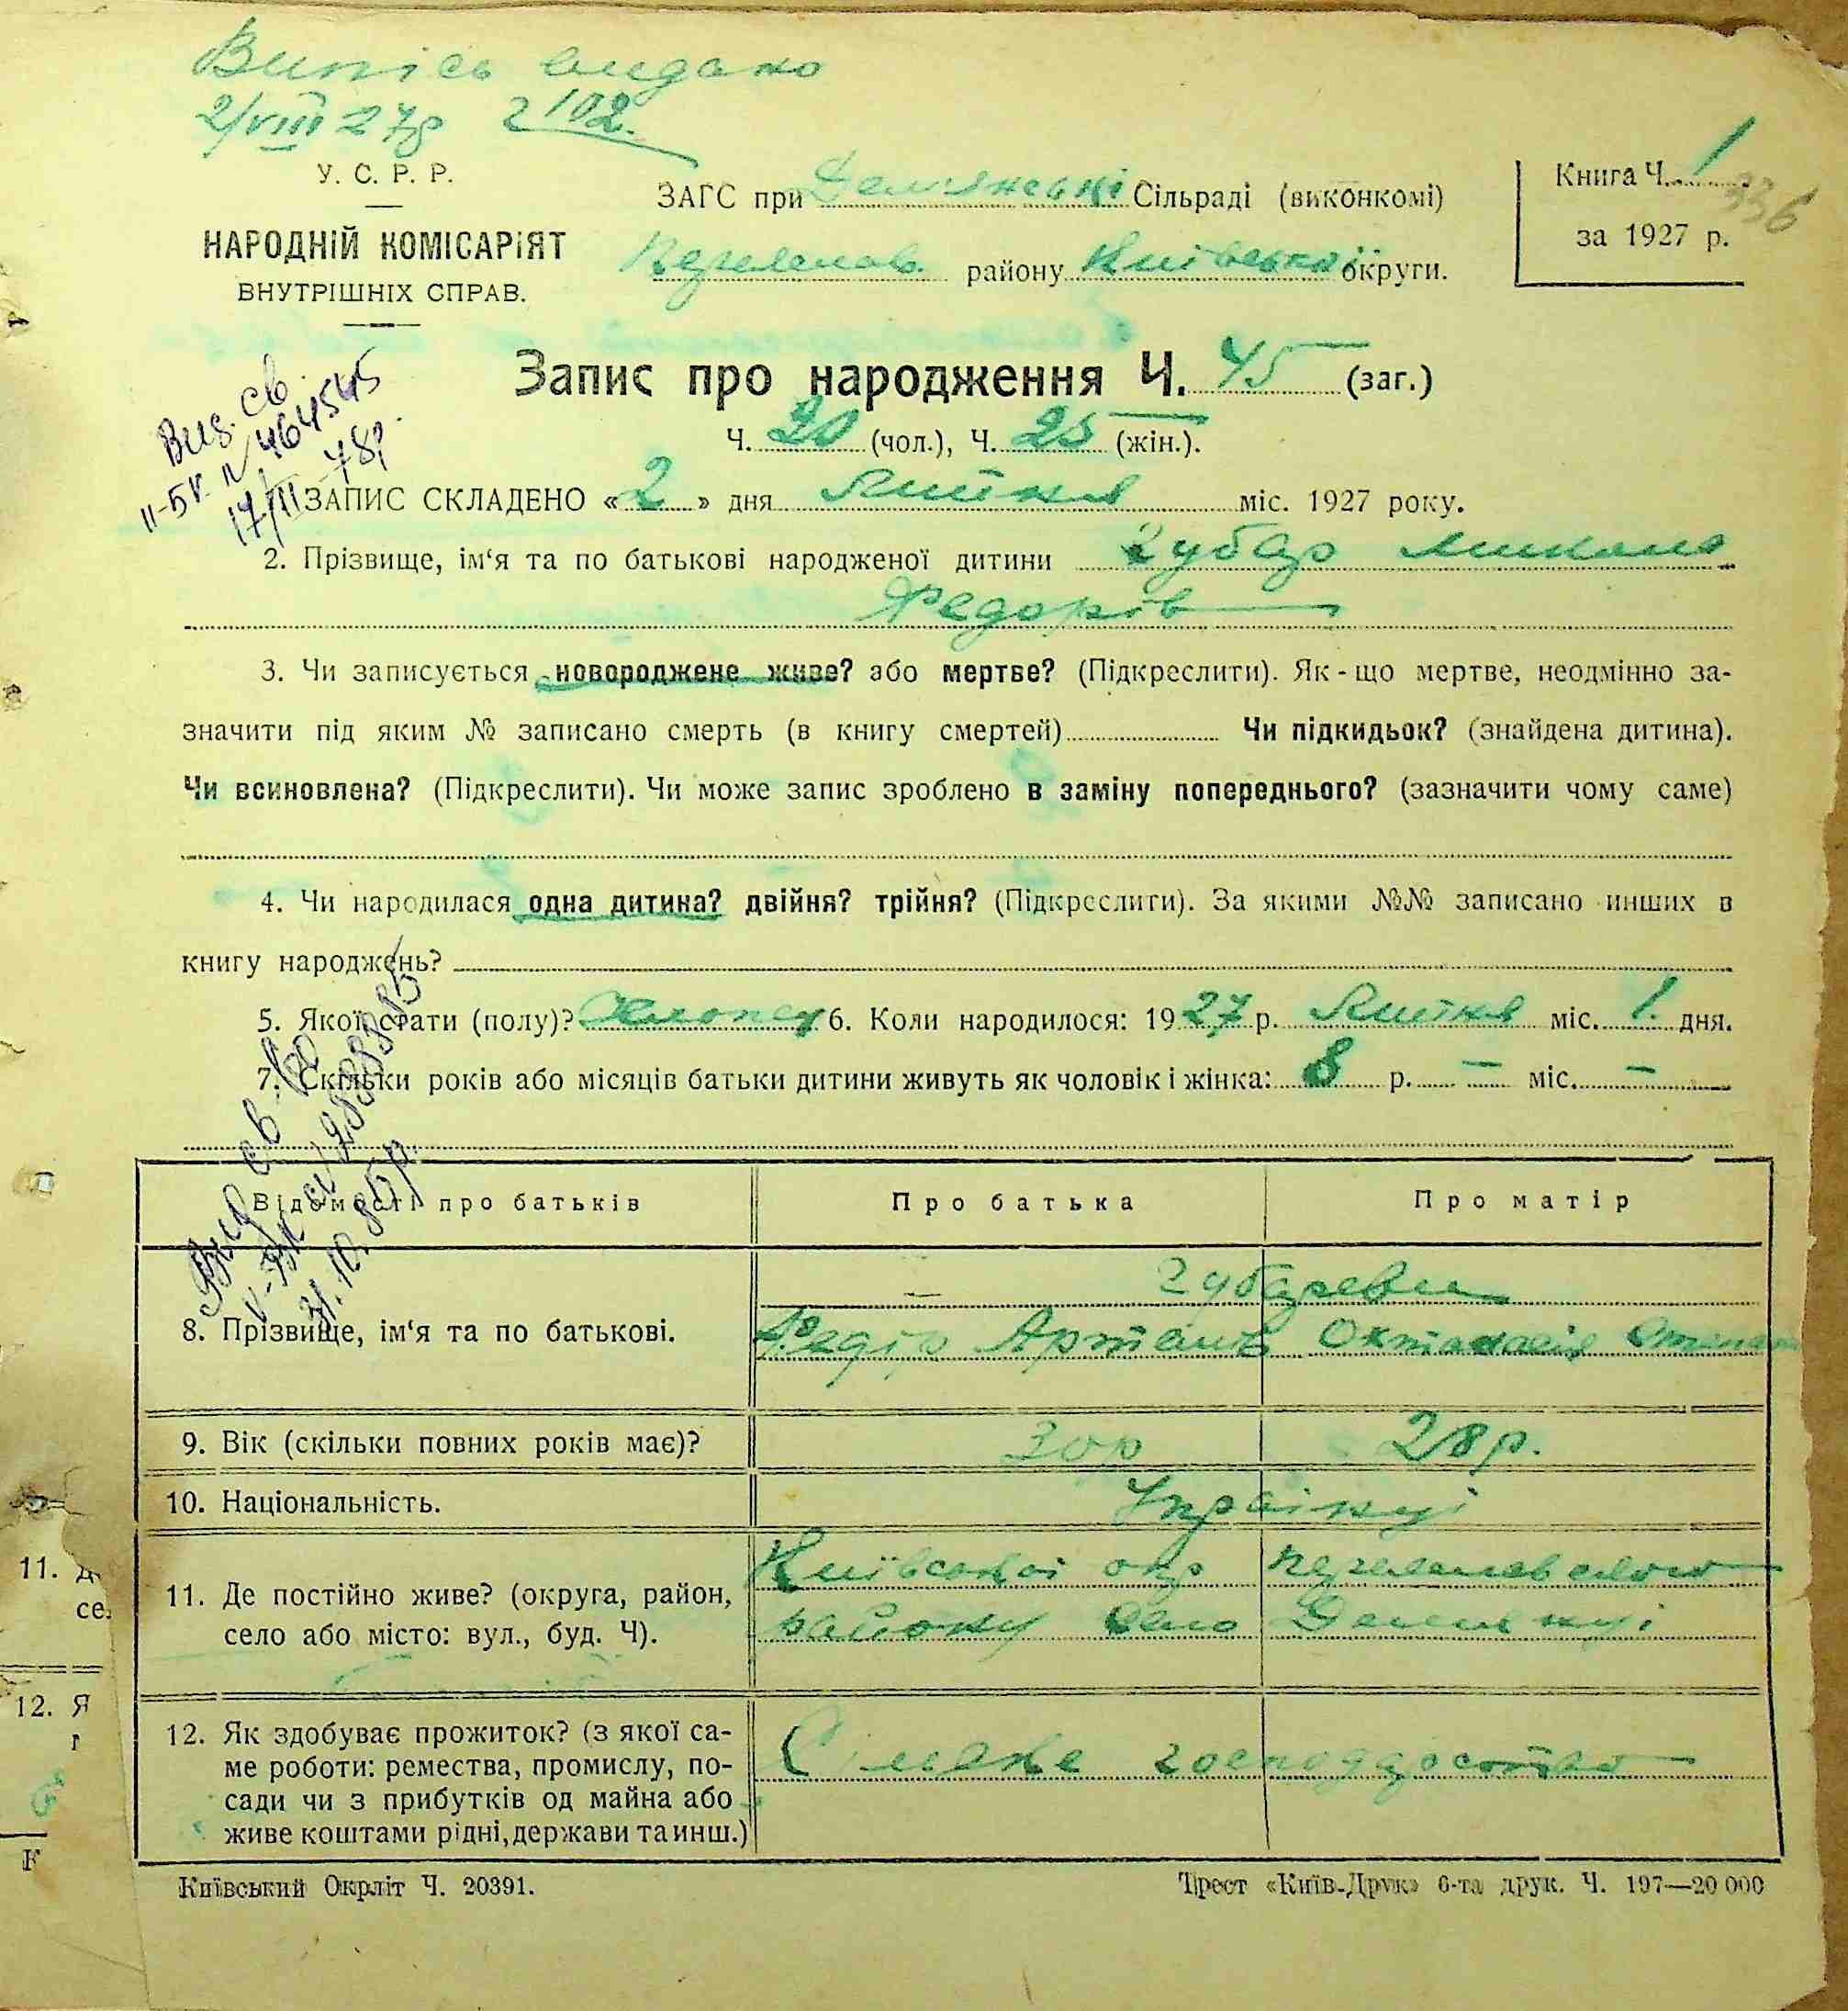 Випісь видано
2/VIII 27р 2102.
У. С. Р. Р.
НАРОДНІЙ КОМІСАРІЯТ
ВНУТРІШНІХ СПРАВ.
ЗАГС при Дем'янській Сільраді (виконкомі)
Переяслав. району Київської округи.
Книга Ч. 1
336
за 1927 р.
Запис про народження Ч. 45 (заг.)
Ч. 20 (чол.), Ч. 25 (жін.).
Вид. св.
II-БК N 464545
17/II 78р.
ЗАПИС СКЛАДЕНО «2» дня Липня міс. 1927 року.
2. Прізвище, ім‘я та по батькові народженої дитини Губар Микола
Федорів
3. Чи записується новороджене живе? або мертве? (Підкреслити). Як-що мертве, неодмінно за-
значити під яким № записано смерть (в книгу смертей) Чи підкидьок? (знайдена дитина).
Чи всиновлена? (Підкреслити). Чи може запис зроблено в заміну попереднього? (зазначити чому саме)
4. Чи народилася одна дитина? двійня? трійня? (Підкреслити). За якими №№ записано инших в
книгу народжень?
5. Якої стати (полу)? Хлопец 6. Коли народилося: 1927 р. Липня міс. 1. дня.
7. Скільки років або місяців батьки дитини живуть як чоловік і жінка: 8 р. — міс. —
Відомості про батьків Про батька Про матір
8. Прізвище, ім‘я та по батькові.
Губареви
Федір Артемів Октанасія
9. Вік (скільки повних років має)? 30р 28р.
10. Національність. Українці
11. Де постійно живе? (округа, район,
село або місто: вул., буд. Ч).
Київської окр Переяславського
району село Демьянці
12. Як здобуває прожиток? (з якої са-
ме роботи: ремества, промислу, по-
сади чи з прибутків од майна або
живе коштами рідні, держави та инш.)
Сільське господарство
11. Д
се.
12. Я
Київський Окрліт Ч. 20391.
Трест «Київ-Друк» 6-та друк. Ч. 197—20 000